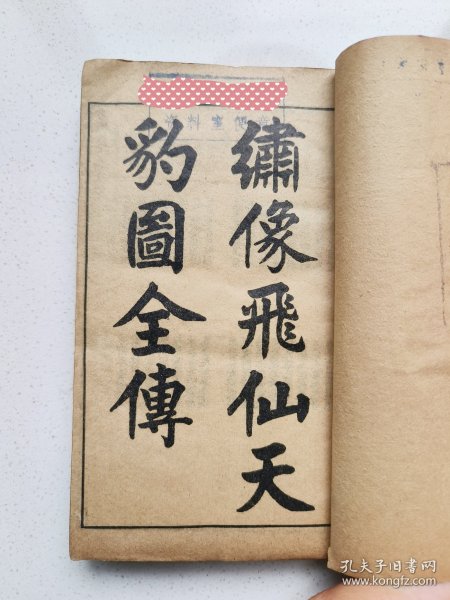 繡像飛仙天
豹圖全傳
孔夫子旧书网
www.kongfz.com